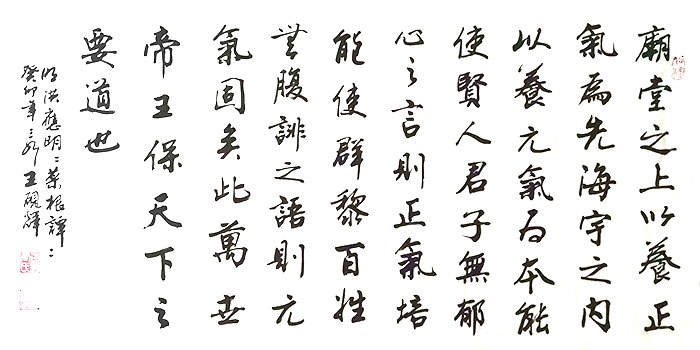 廟堂之上以養正
氣為先海宇之內
以養元氣為本能
使賢人君子無郁
心之言則正氣培
能使群黎百姓
無腹誹之語則元
氣固矣此萬世
帝王保天下之
要道也
明洪應明菜根譚
癸卯年 王硯輝